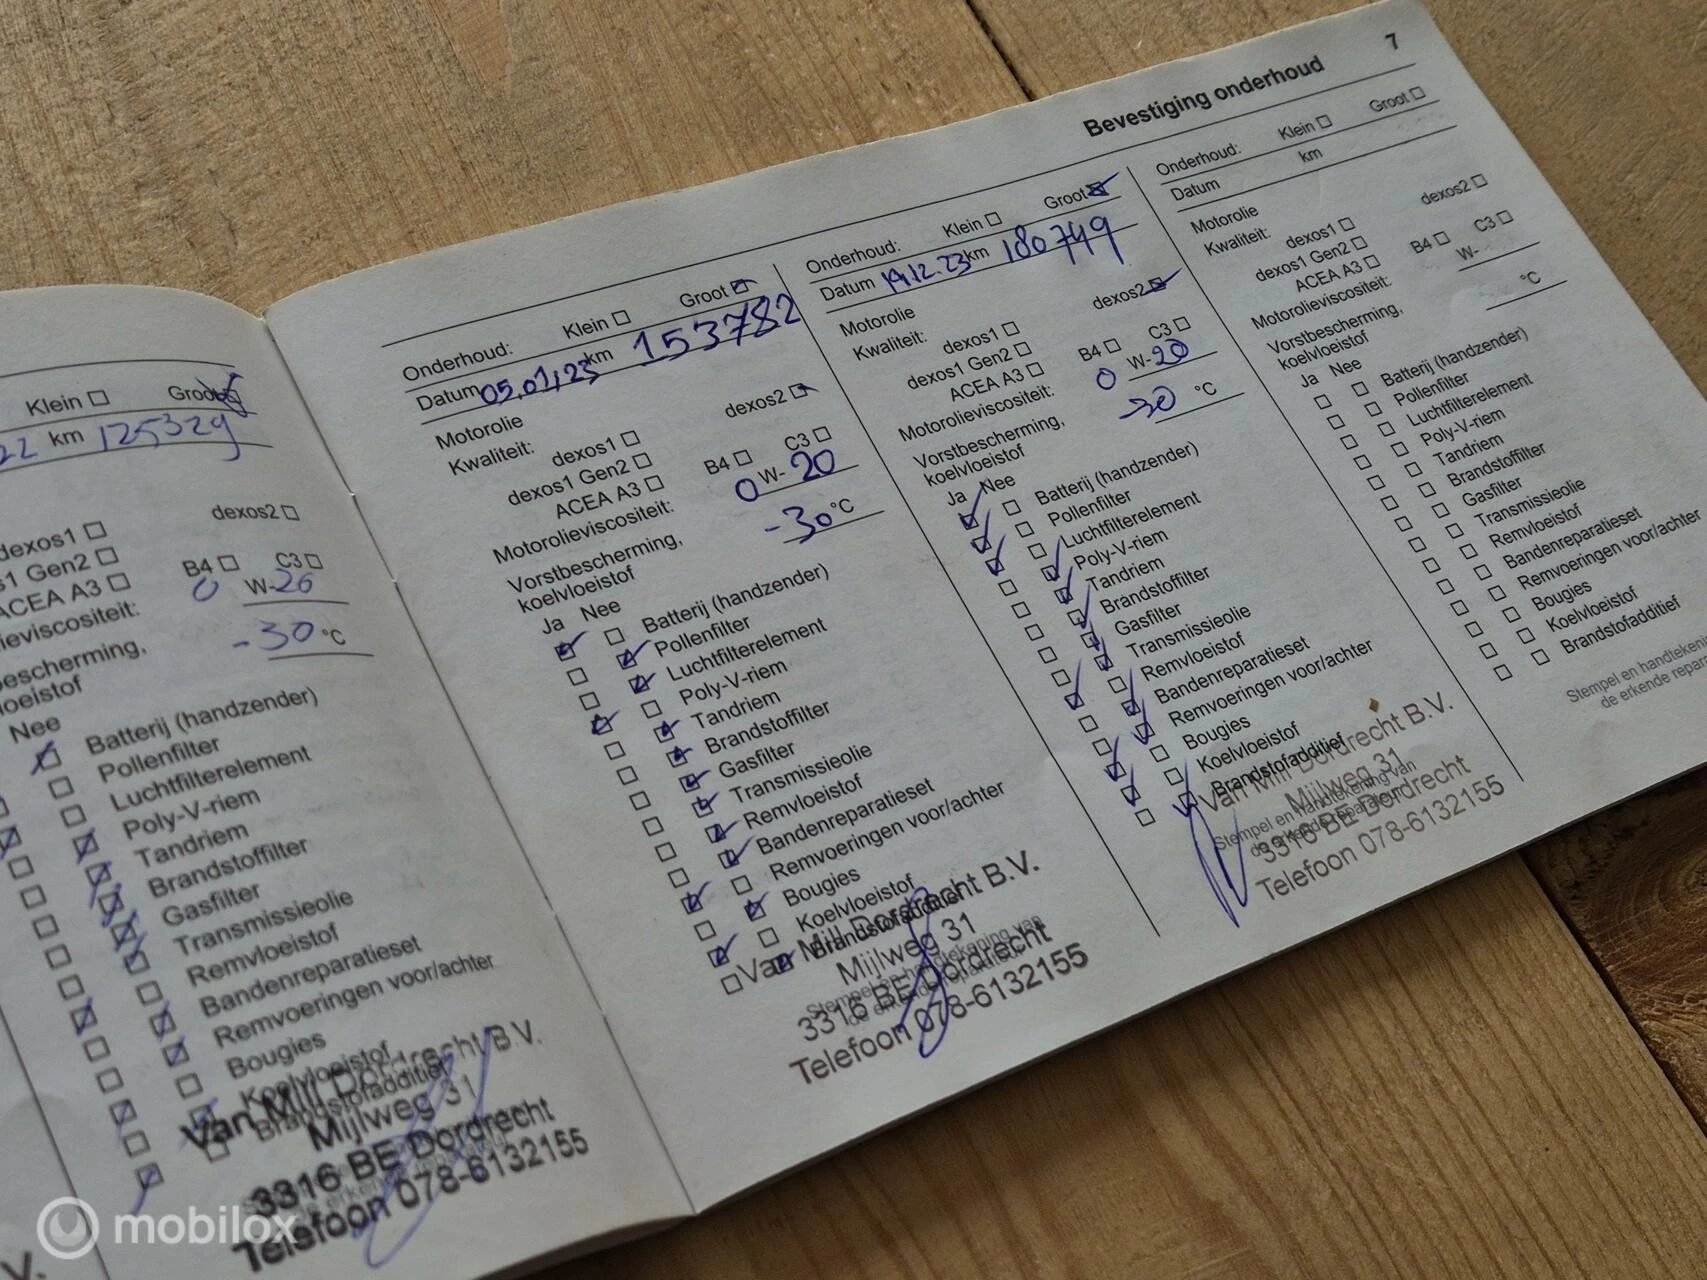 Bevestiging onderhoud 7
Klein Groot
22 km 125329
dexos1 dexos2
s1 Gen2
ACEA A3 B4 C3
lieviscositeit: 0 W-20
escherming,
loeistof -30 °C
Nee
Batterij (handzender)
Pollenfilter
Luchtfilterelement
Poly-V-riem
Tandriem
Brandstoffilter
Gasfilter
Transmissieolie
Remvloeistof
Bandenreparatieset
Remvoeringen voor/achter
Bougies
Koelvloeistof
Brandstofadditief
Van Mill Dordrecht B.V.
Mijlweg 31
3316 BE Dordrecht
Telefoon 078-6132155
Onderhoud: Klein Groot
Datum 05.01.23 km 153782
Motorolie
Kwaliteit: dexos1 dexos2
dexos1 Gen2
ACEA A3 B4 C3
Motorolieviscositeit: 0 W-20
Vorstbescherming,
koelvloeistof -30 °C
Ja Nee
Batterij (handzender)
Pollenfilter
Luchtfilterelement
Poly-V-riem
Tandriem
Brandstoffilter
Gasfilter
Transmissieolie
Remvloeistof
Bandenreparatieset
Remvoeringen voor/achter
Bougies
Koelvloeistof
Brandstofadditief
Stempel en handtekening van
de erkende reparateur
Van Mill Dordrecht B.V.
Mijlweg 31
3316 BE Dordrecht
Telefoon 078-6132155
Onderhoud: Klein Groot
Datum 19.12.23 km 180749
Motorolie
Kwaliteit: dexos1 dexos2
dexos1 Gen2
ACEA A3 B4 C3
Motorolieviscositeit: 0 W-20
Vorstbescherming,
koelvloeistof -30 °C
Ja Nee
Batterij (handzender)
Pollenfilter
Luchtfilterelement
Poly-V-riem
Tandriem
Brandstoffilter
Gasfilter
Transmissieolie
Remvloeistof
Bandenreparatieset
Remvoeringen voor/achter
Bougies
Koelvloeistof
Brandstofadditief
Stempel en handtekening van
de erkende reparateur
Van Mill Dordrecht B.V.
Mijlweg 31
3316 BE Dordrecht
Telefoon 078-6132155
Onderhoud: Klein Groot
Datum km
Motorolie
Kwaliteit: dexos1 dexos2
dexos1 Gen2
ACEA A3 B4 C3
Motorolieviscositeit: W-
Vorstbescherming,
koelvloeistof °C
Ja Nee
Batterij (handzender)
Pollenfilter
Luchtfilterelement
Poly-V-riem
Tandriem
Brandstoffilter
Gasfilter
Transmissieolie
Remvloeistof
Bandenreparatieset
Remvoeringen voor/achter
Bougies
Koelvloeistof
Brandstofadditief
Stempel en handtekeni
de erkende repar
V.
mobilox